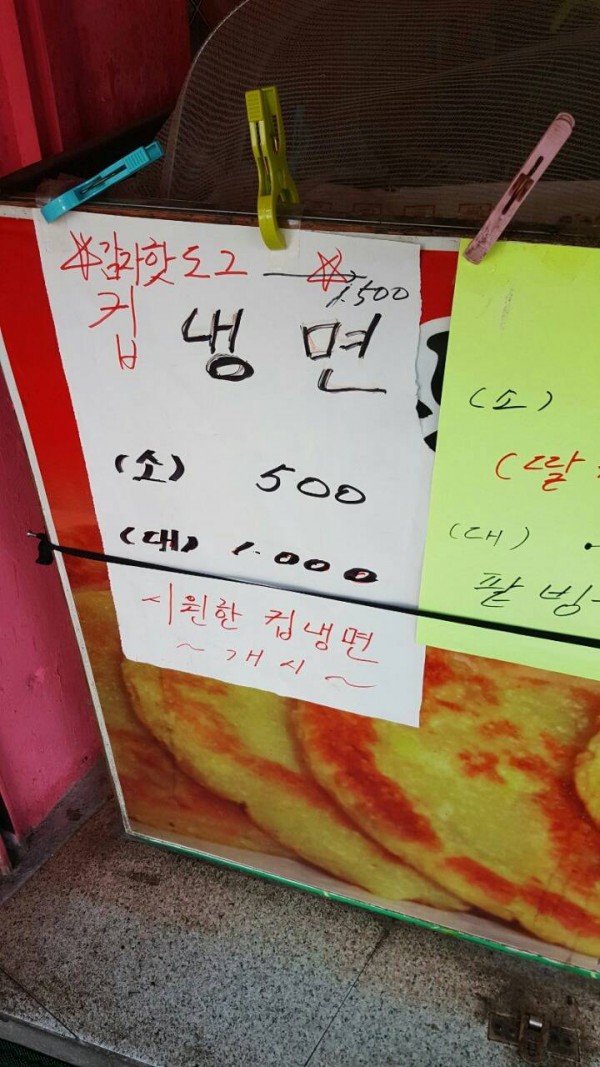 ☆감자핫도그 — ☆
1.500
컵 냉 면
(소) 500
(대) 1.000
시원한 컵냉면
~ 개 시 ~
(소)
(딸
(대)
팥 빙